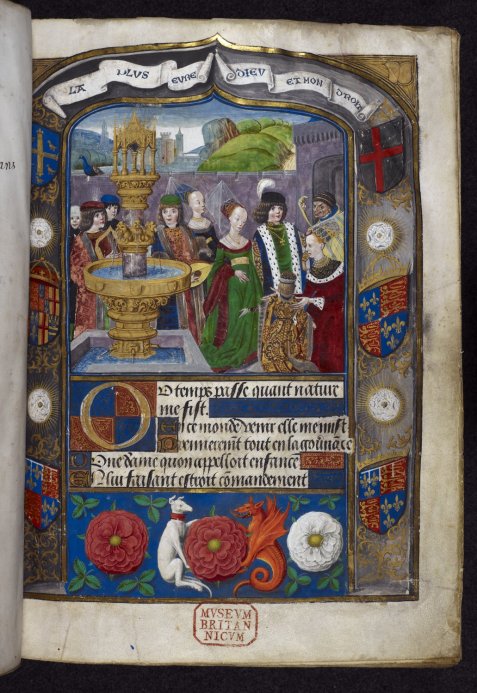 LA PLUS EURE DIEU ET MON DROIT
Ou temps passe quant nature
me fist.
En ce monde venir elle me mist
Premieremēt tout en la gouun̄āce
Dune dame quon appelloit enfance
En luy faisant estroit comandement
MVSEVM
BRITAN
NICVM